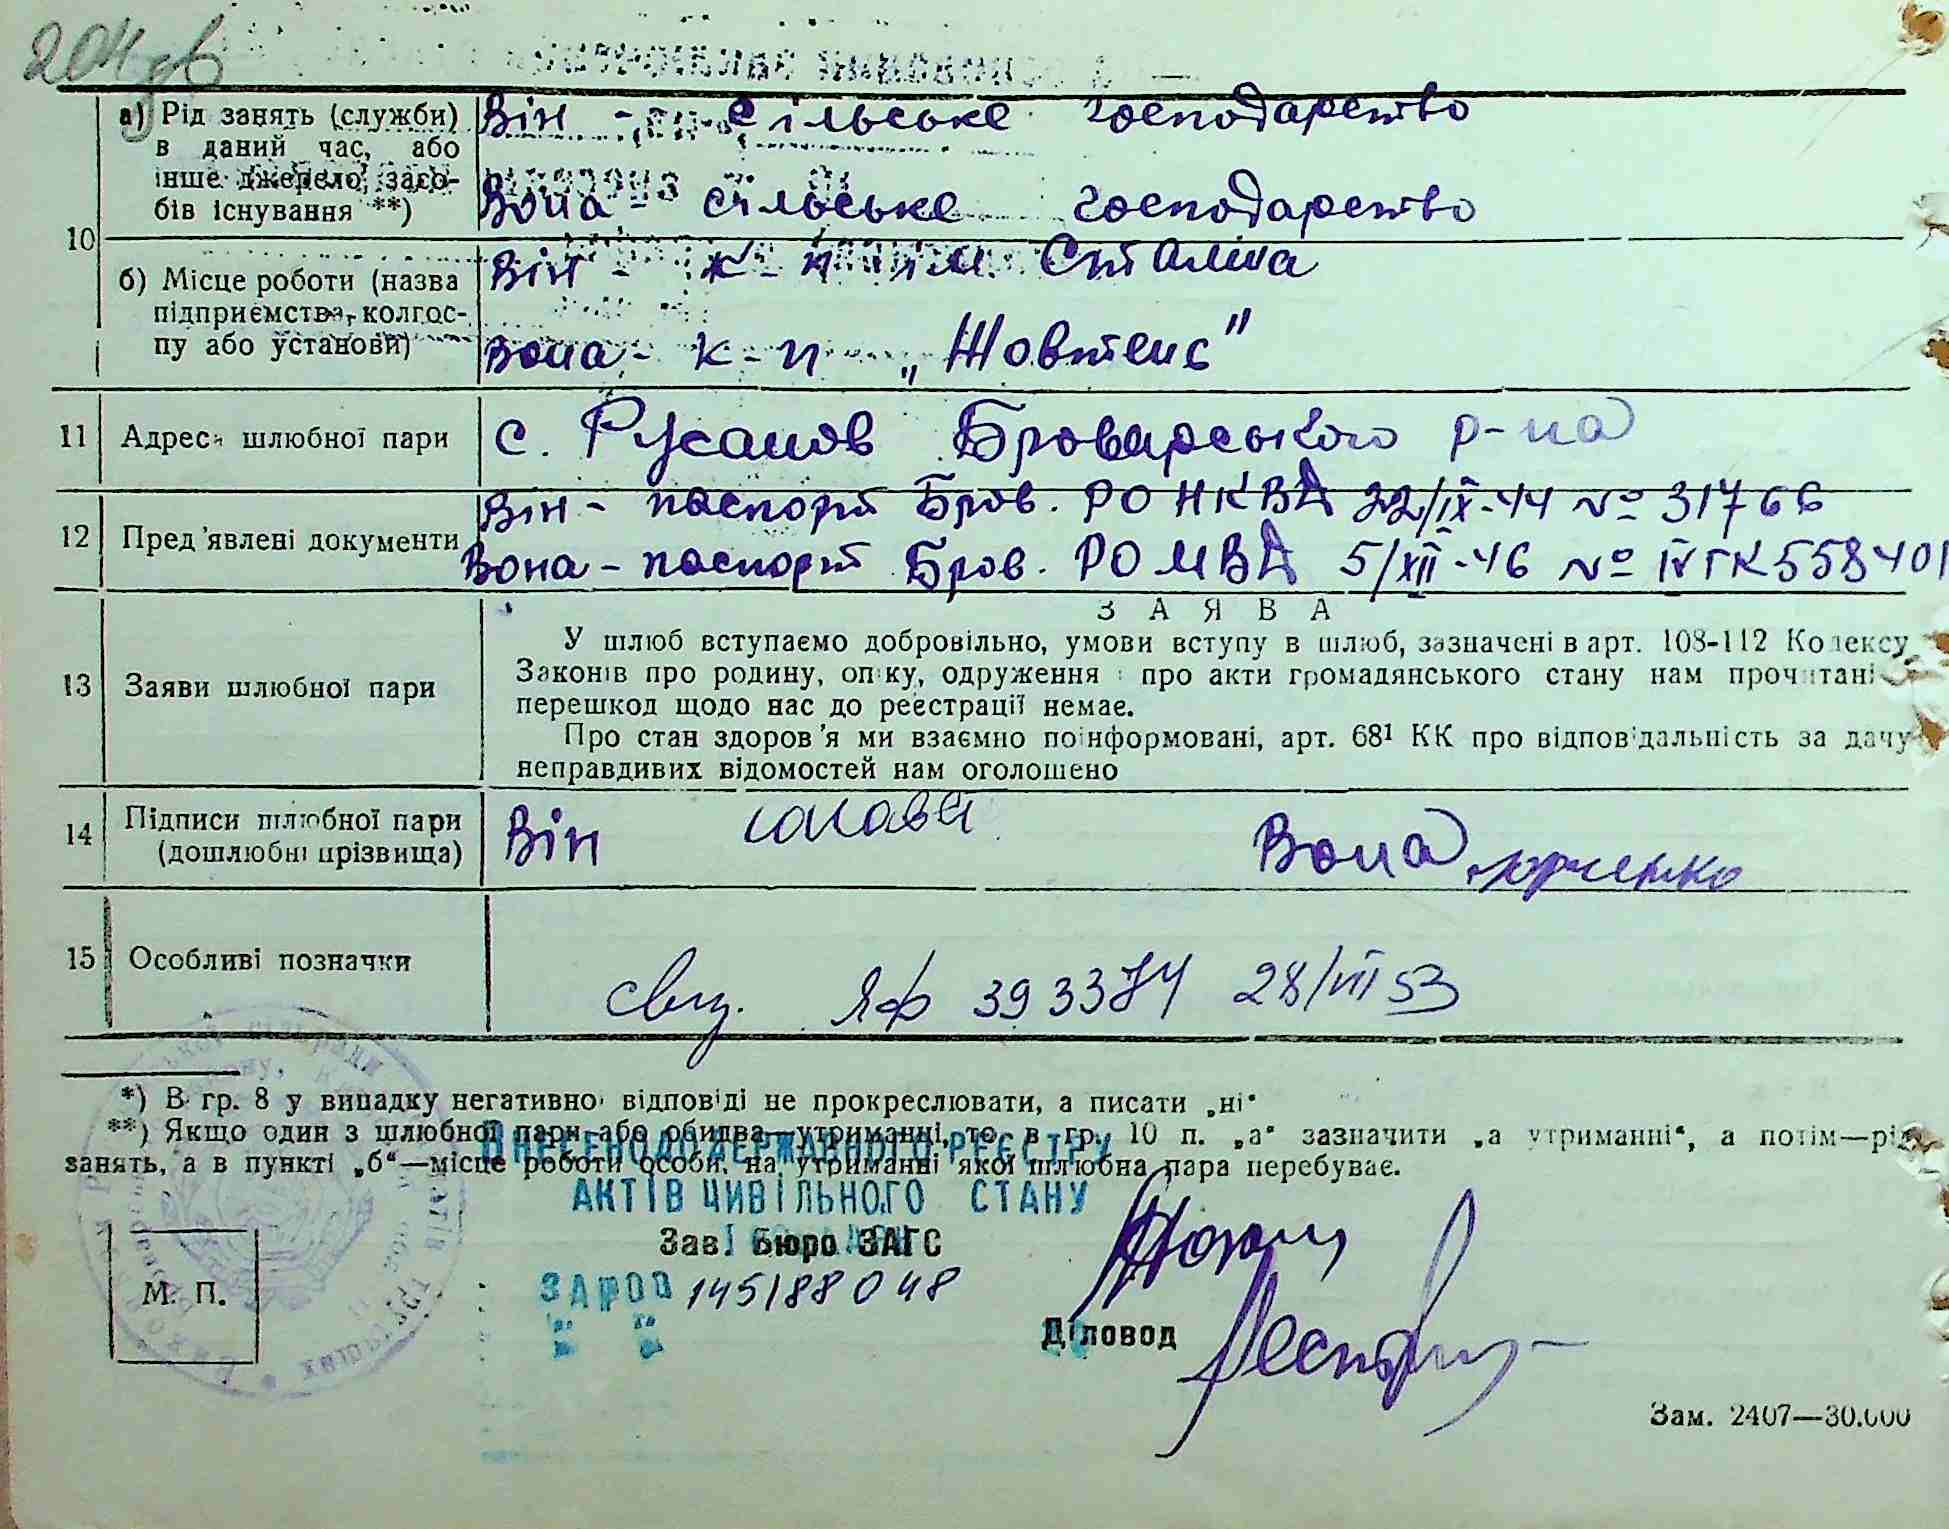 а) Рід занять (служби)
в даний час, або
інше джерело засо-
бів існування **)
Він - сільське господарство
Вона - сільське господарство
10
б) Місце роботи (назва
підприємства, колгос-
пу або установи)
Він - к-п ім Сталіна
Вона - к-п „Жовтень"
11 Адреса шлюбної пари с. Русанов Броварського р-на
12 Пред'явлені документи
Він - паспорт Бров. РО НКВД 22/IX-44 № 31766
Вона - паспорт Бров. РО МВД 5/XII-46 № IV ГК 558401
ЗАЯВА
13 Заяви шлюбної пари
У шлюб вступаємо добровільно, умови вступу в шлюб, зазначені в арт. 108-112 Кодексу
Законів про родину, опіку, одруження і про акти громадянського стану нам прочитані
перешкод щодо нас до реєстрації немає.
Про стан здоров'я ми взаємно поінформовані, арт. 68¹ КК про відповідальність за дачу
неправдивих відомостей нам оголошено
14 Підписи шлюбної пари
(дошлюбні прізвища)
Він Вона
15 Особливі позначки
свид. ЯФ 393374 28/VII 53
*) В гр. 8 у випадку негативної відповіді не прокреслювати, а писати „ні"
**) Якщо один з шлюбної пари або обидва—утриманні, то в гр. 10 п. „а" зазначити „а утриманні", а потім—рід
занять, а в пункті „б"—місце роботи особи, на утриманні якої шлюбна пара перебуває.
ВНЕСЕНО ДО ДЕРЖАВНОГО РЕЄСТРУ
АКТІВ ЦИВІЛЬНОГО СТАНУ
Зав. Бюро ЗАГС
ЗА № 145188048
М. П.
Діловод
Зам. 2407—30.000